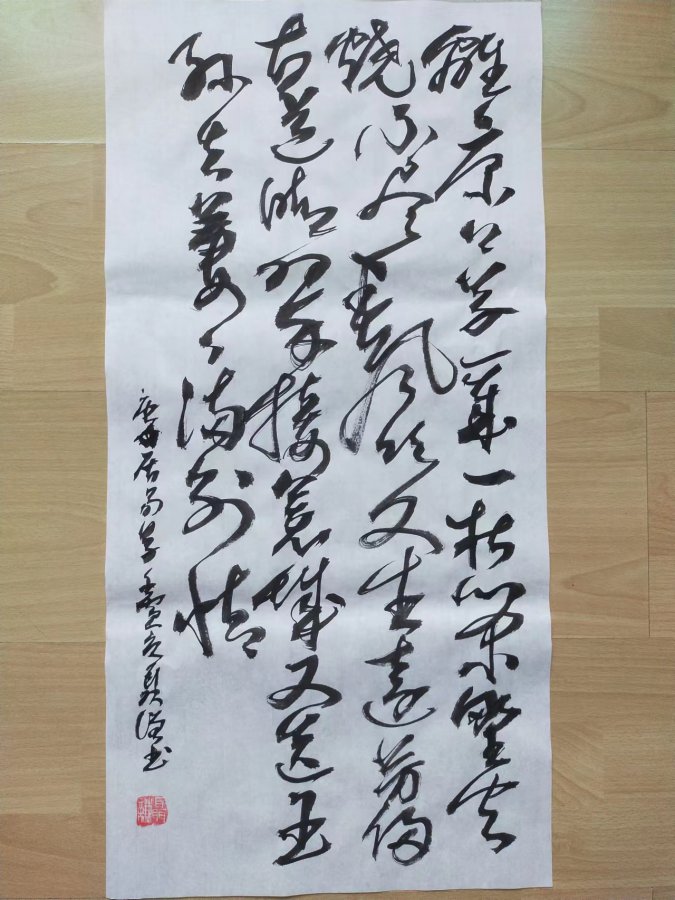 離〻原上草一歲一枯榮野火
燒不尽春風吹又生遠芳侵
古道晴翠接荒城又送王
孫去萋〻滿別情
唐白居易草書